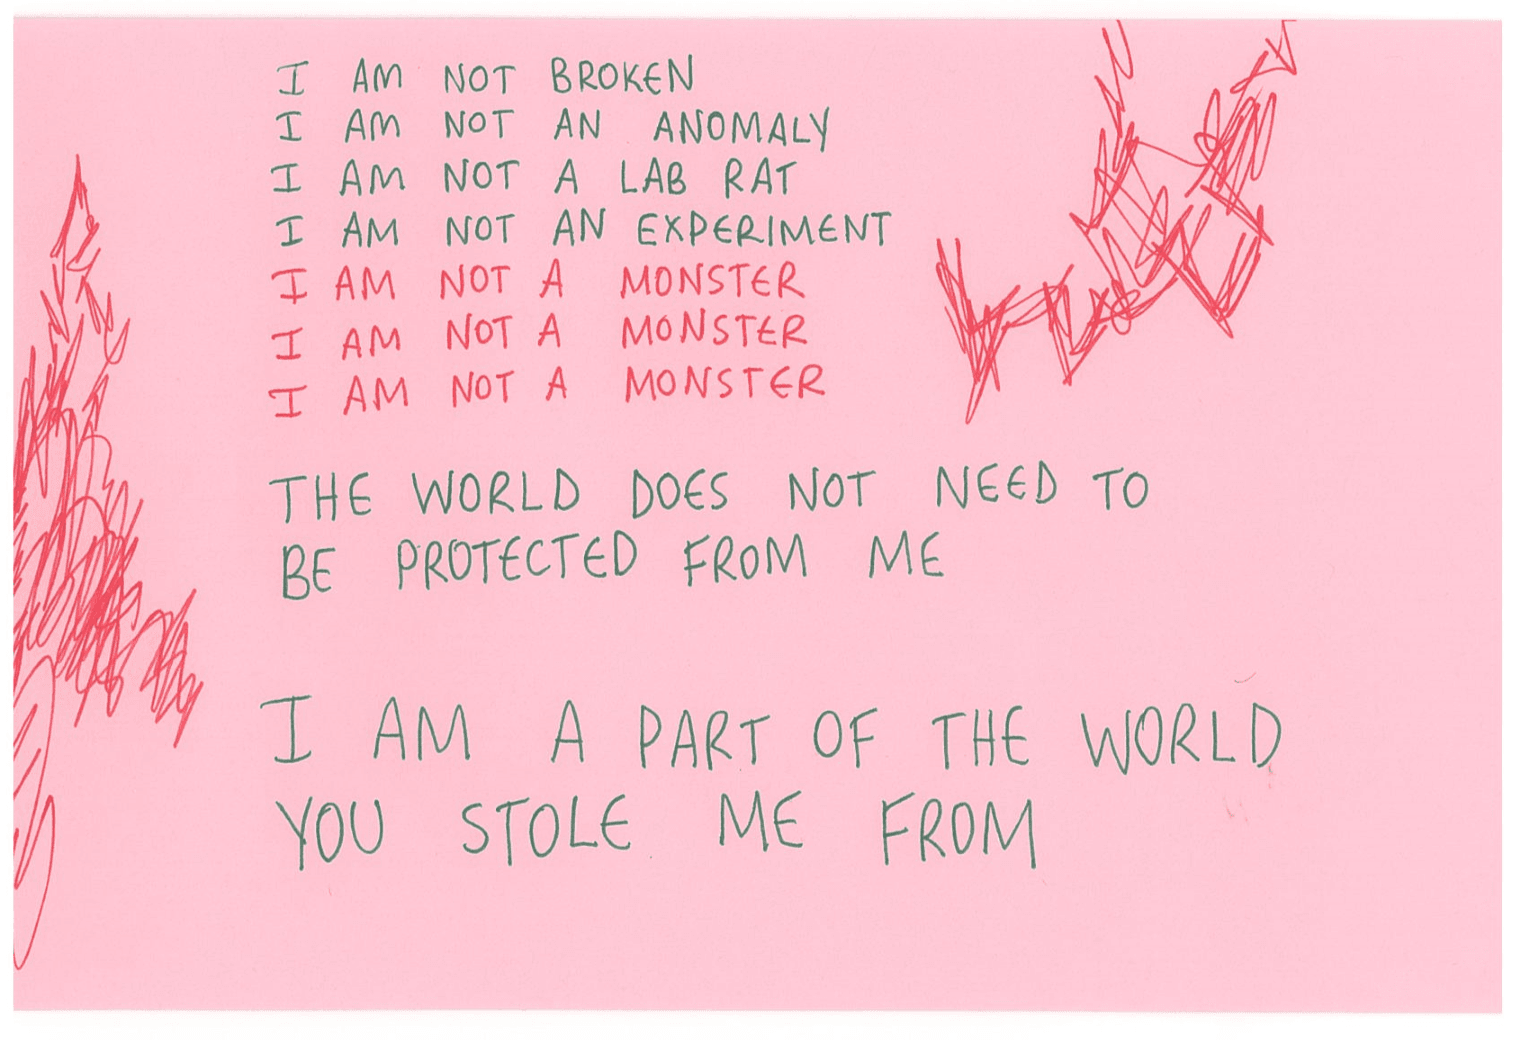 I AM NOT BROKEN
I AM NOT AN ANOMALY
I AM NOT A LAB RAT
I AM NOT AN EXPERIMENT
I AM NOT A MONSTER
I AM NOT A MONSTER
I AM NOT A MONSTER
THE WORLD DOES NOT NEED TO
BE PROTECTED FROM ME
I AM A PART OF THE WORLD
YOU STOLE ME FROM